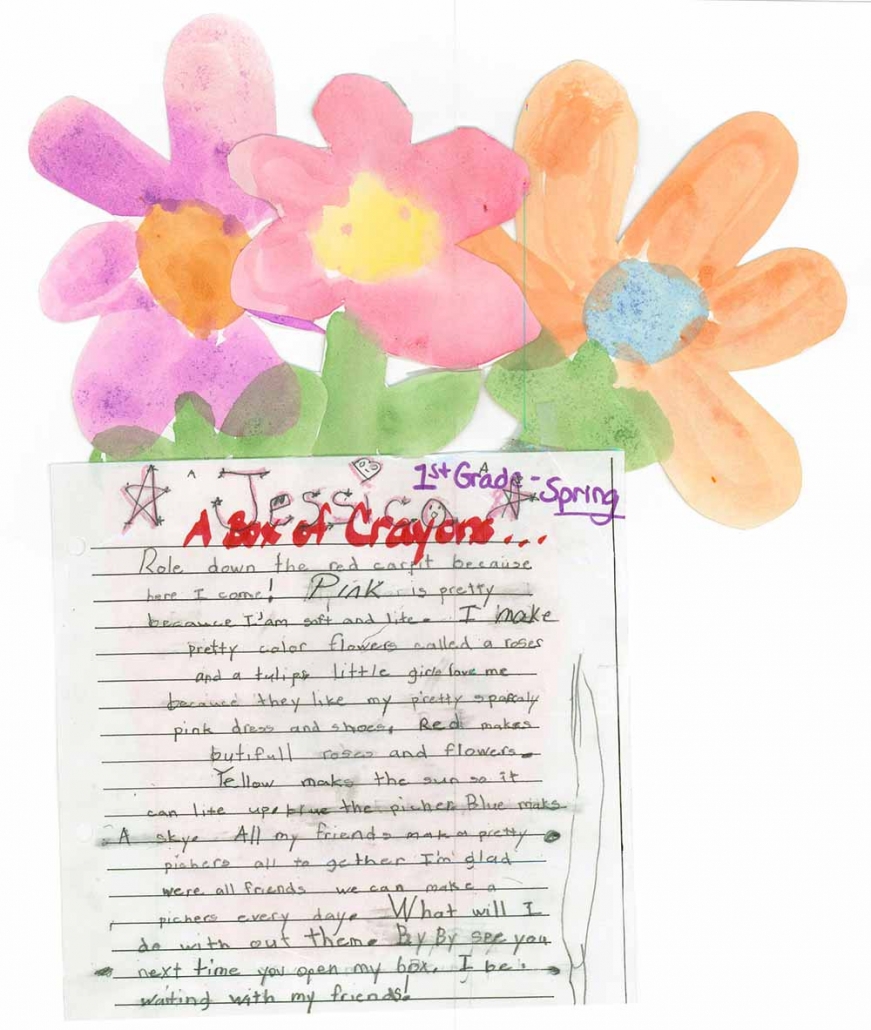 Jessica
1st Grade -
Spring
A Box of Crayons...
Role down the red carpit because
here I come! Pink is pretty
because I'am soft and lite. I make
pretty color flowers called a roses
and a tulips little girls love me
because they like my pretty sparaly
pink dress and shoes. Red makes
butifull roses and flowers.
Yellow maks the sun so it
can lite up. blue the picher Blue maks
A skye All my friends make a pretty
pichers all to gether I'm glad
were all friends we can make a
pichers every daye What will I
do with out theme By By see you
next time you open my box. I be
waiting with my friends!